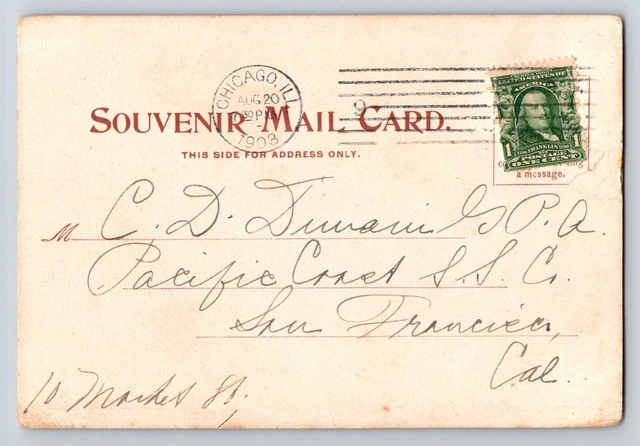 CHICAGO, ILL.
AUG 20
30 PM
1903
SOUVENIR MAIL CARD.
THIS SIDE FOR ADDRESS ONLY.
UNITED STATES OF
AMERICA
FRANKLIN
1 POSTAGE 1
ONE CENT
a message.
M C. D. Dunann G. P. A.
Pacific Coast S. S. Co.
San Francisco,
Cal.
10 Market St,